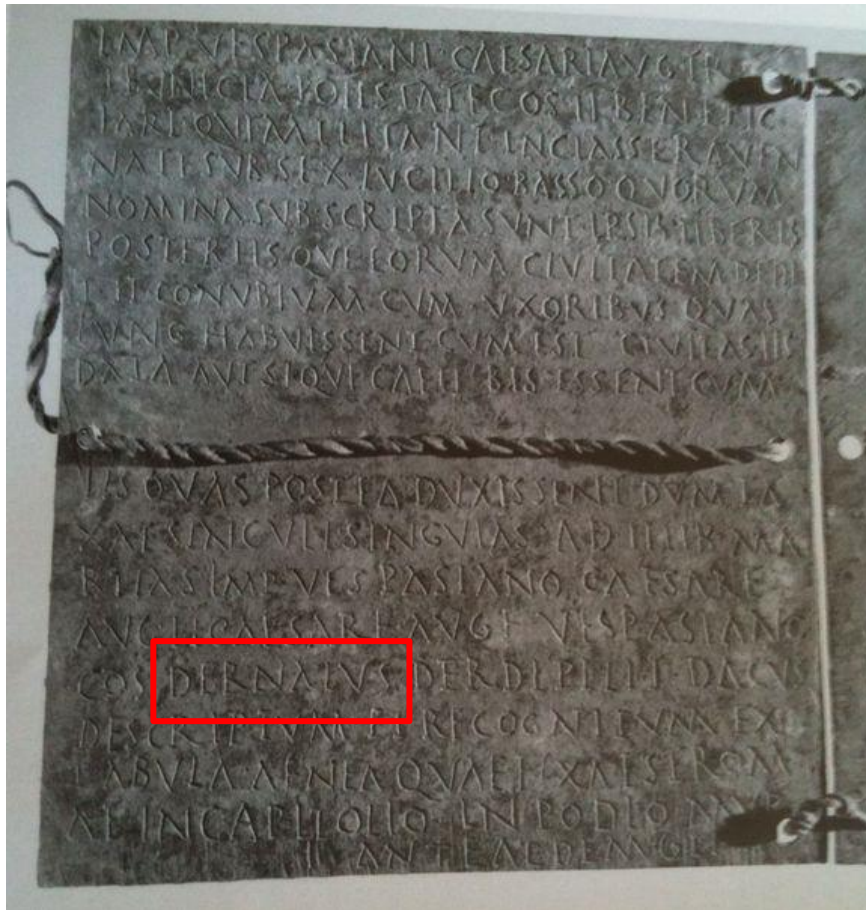 IMP VESPASIANI CAESARI AVG TR
IBINICIA POTESTATE COS II BENEFIC
IARI QVI MILITANT IN CLASSE RAVEN
NATE SVB SEX LVCILIO BASSO QVORVM
NOMINA SVBSCRIPTA SVNT IPSIS LIBERIS
POSTERIISQVE EORVM CIVITATEM DEDI
T ET CONVBIVM CVM VXORIBVS QVAS
TVNC HABVISSENT CVM EST CIVITAS IIS
DATA AVT SI QVI CAELIBIS ESSENT CVM
IIS QVAS POSTEA DVXISSENT DVM TA
XAT SINGVLI SINGVLAS AD IIII K MA
RTIAS IMP VESPASIANO CAESARE
AVG II CAESARE AVG F VESPASIANO
COS DERNAIVS DERDIPILI F DACVS
DESCRIPTVM ET RECOGNITVM EX
TABVLA AENEA QVAE FIXA EST ROM
AE IN CAPITOLIO IN PODIO MVR
ANTE AEDEM GE